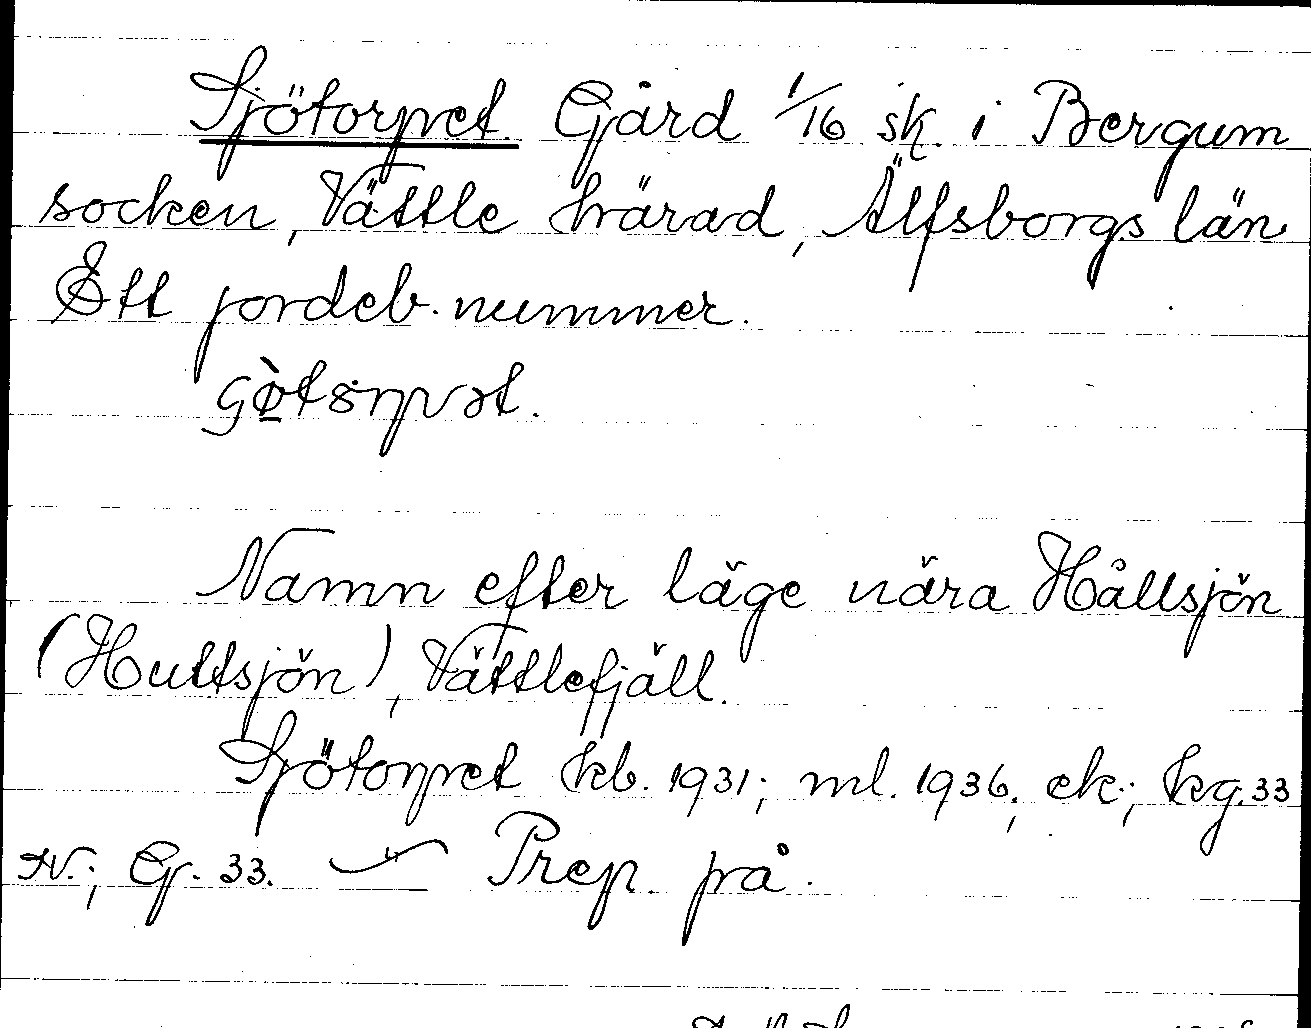 Sjötorpet. Gård 1/16 sk. i Bergum
socken, Vättle härad, Älfsborgs län
Ett jordeb. nummer.

Namn efter läge nära Hållsjön
(Hultsjön), Vättlefjäll.
Sjötorpet kb. 1931; ml. 1936; ek.; kg. 33
N.; Gj. 33. Prep. på.